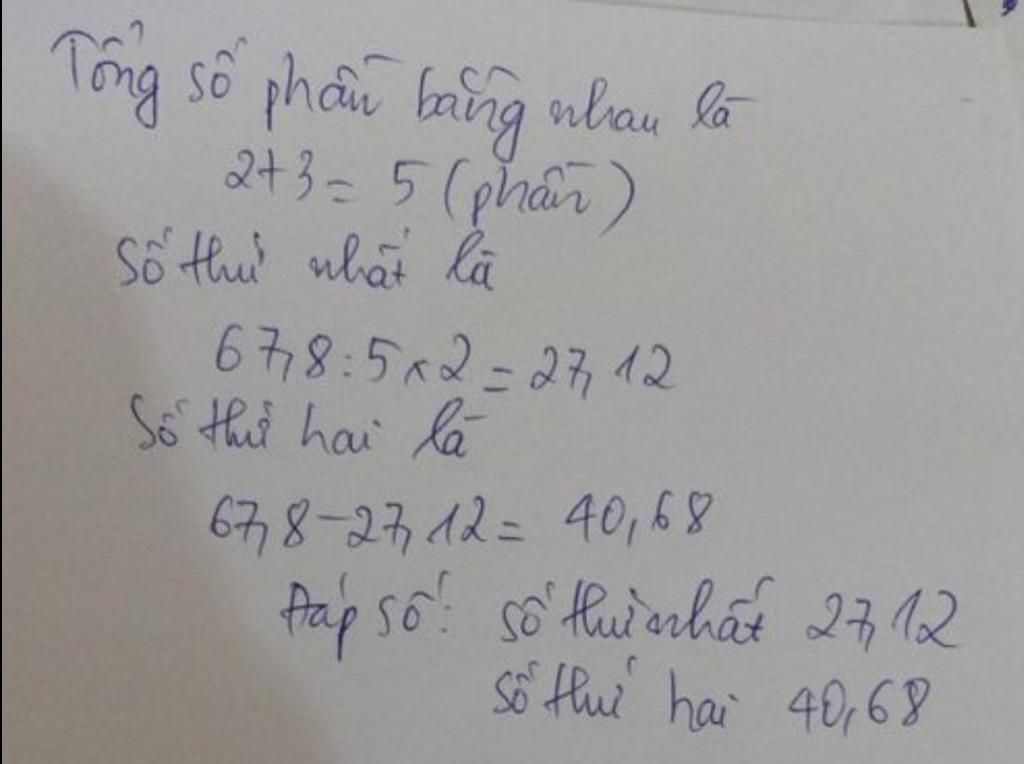 Tổng số phần bằng nhau là
2+3 = 5 (phần)
Số thứ nhất là
67,8 : 5 x 2 = 27,12
Số thứ hai là
67,8 - 27,12 = 40,68
Đáp số: số thứ nhất 27,12
số thứ hai 40,68